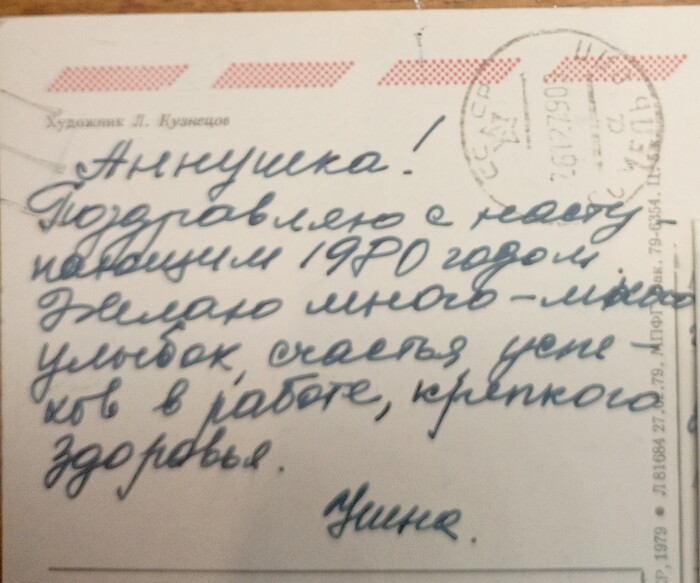 Художник Л. Кузнецов
Аннушка!
Поздравляю с насту-
пающим 1980 годом
Желаю много-много
улыбок, счастья, успе-
хов в работе, крепкого
здоровья.
СССР
26127909
Л 81684 27.02.79. МПФГ. Зак. 79-6354. Ц
Р, 1979